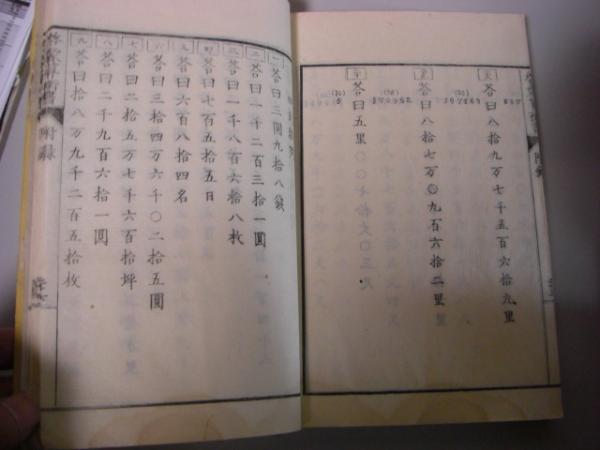 答曰八拾九万七千五百六拾九里
答曰八拾七万〇九百六拾二里
答曰五里〇〇七拾丈〇三尺
一 答曰三圓九拾八錢
二 答曰一千二百三拾一圓
三 答曰一千八百六拾八枚
四 答曰七百五拾五日
五 答曰六百八拾四名
六 答曰三拾四万六千〇二拾五圓
七 答曰二拾五万七千六百拾坪
八 答曰二千九百六拾一圓
九 答曰拾八万九千二百五拾枚
附錄